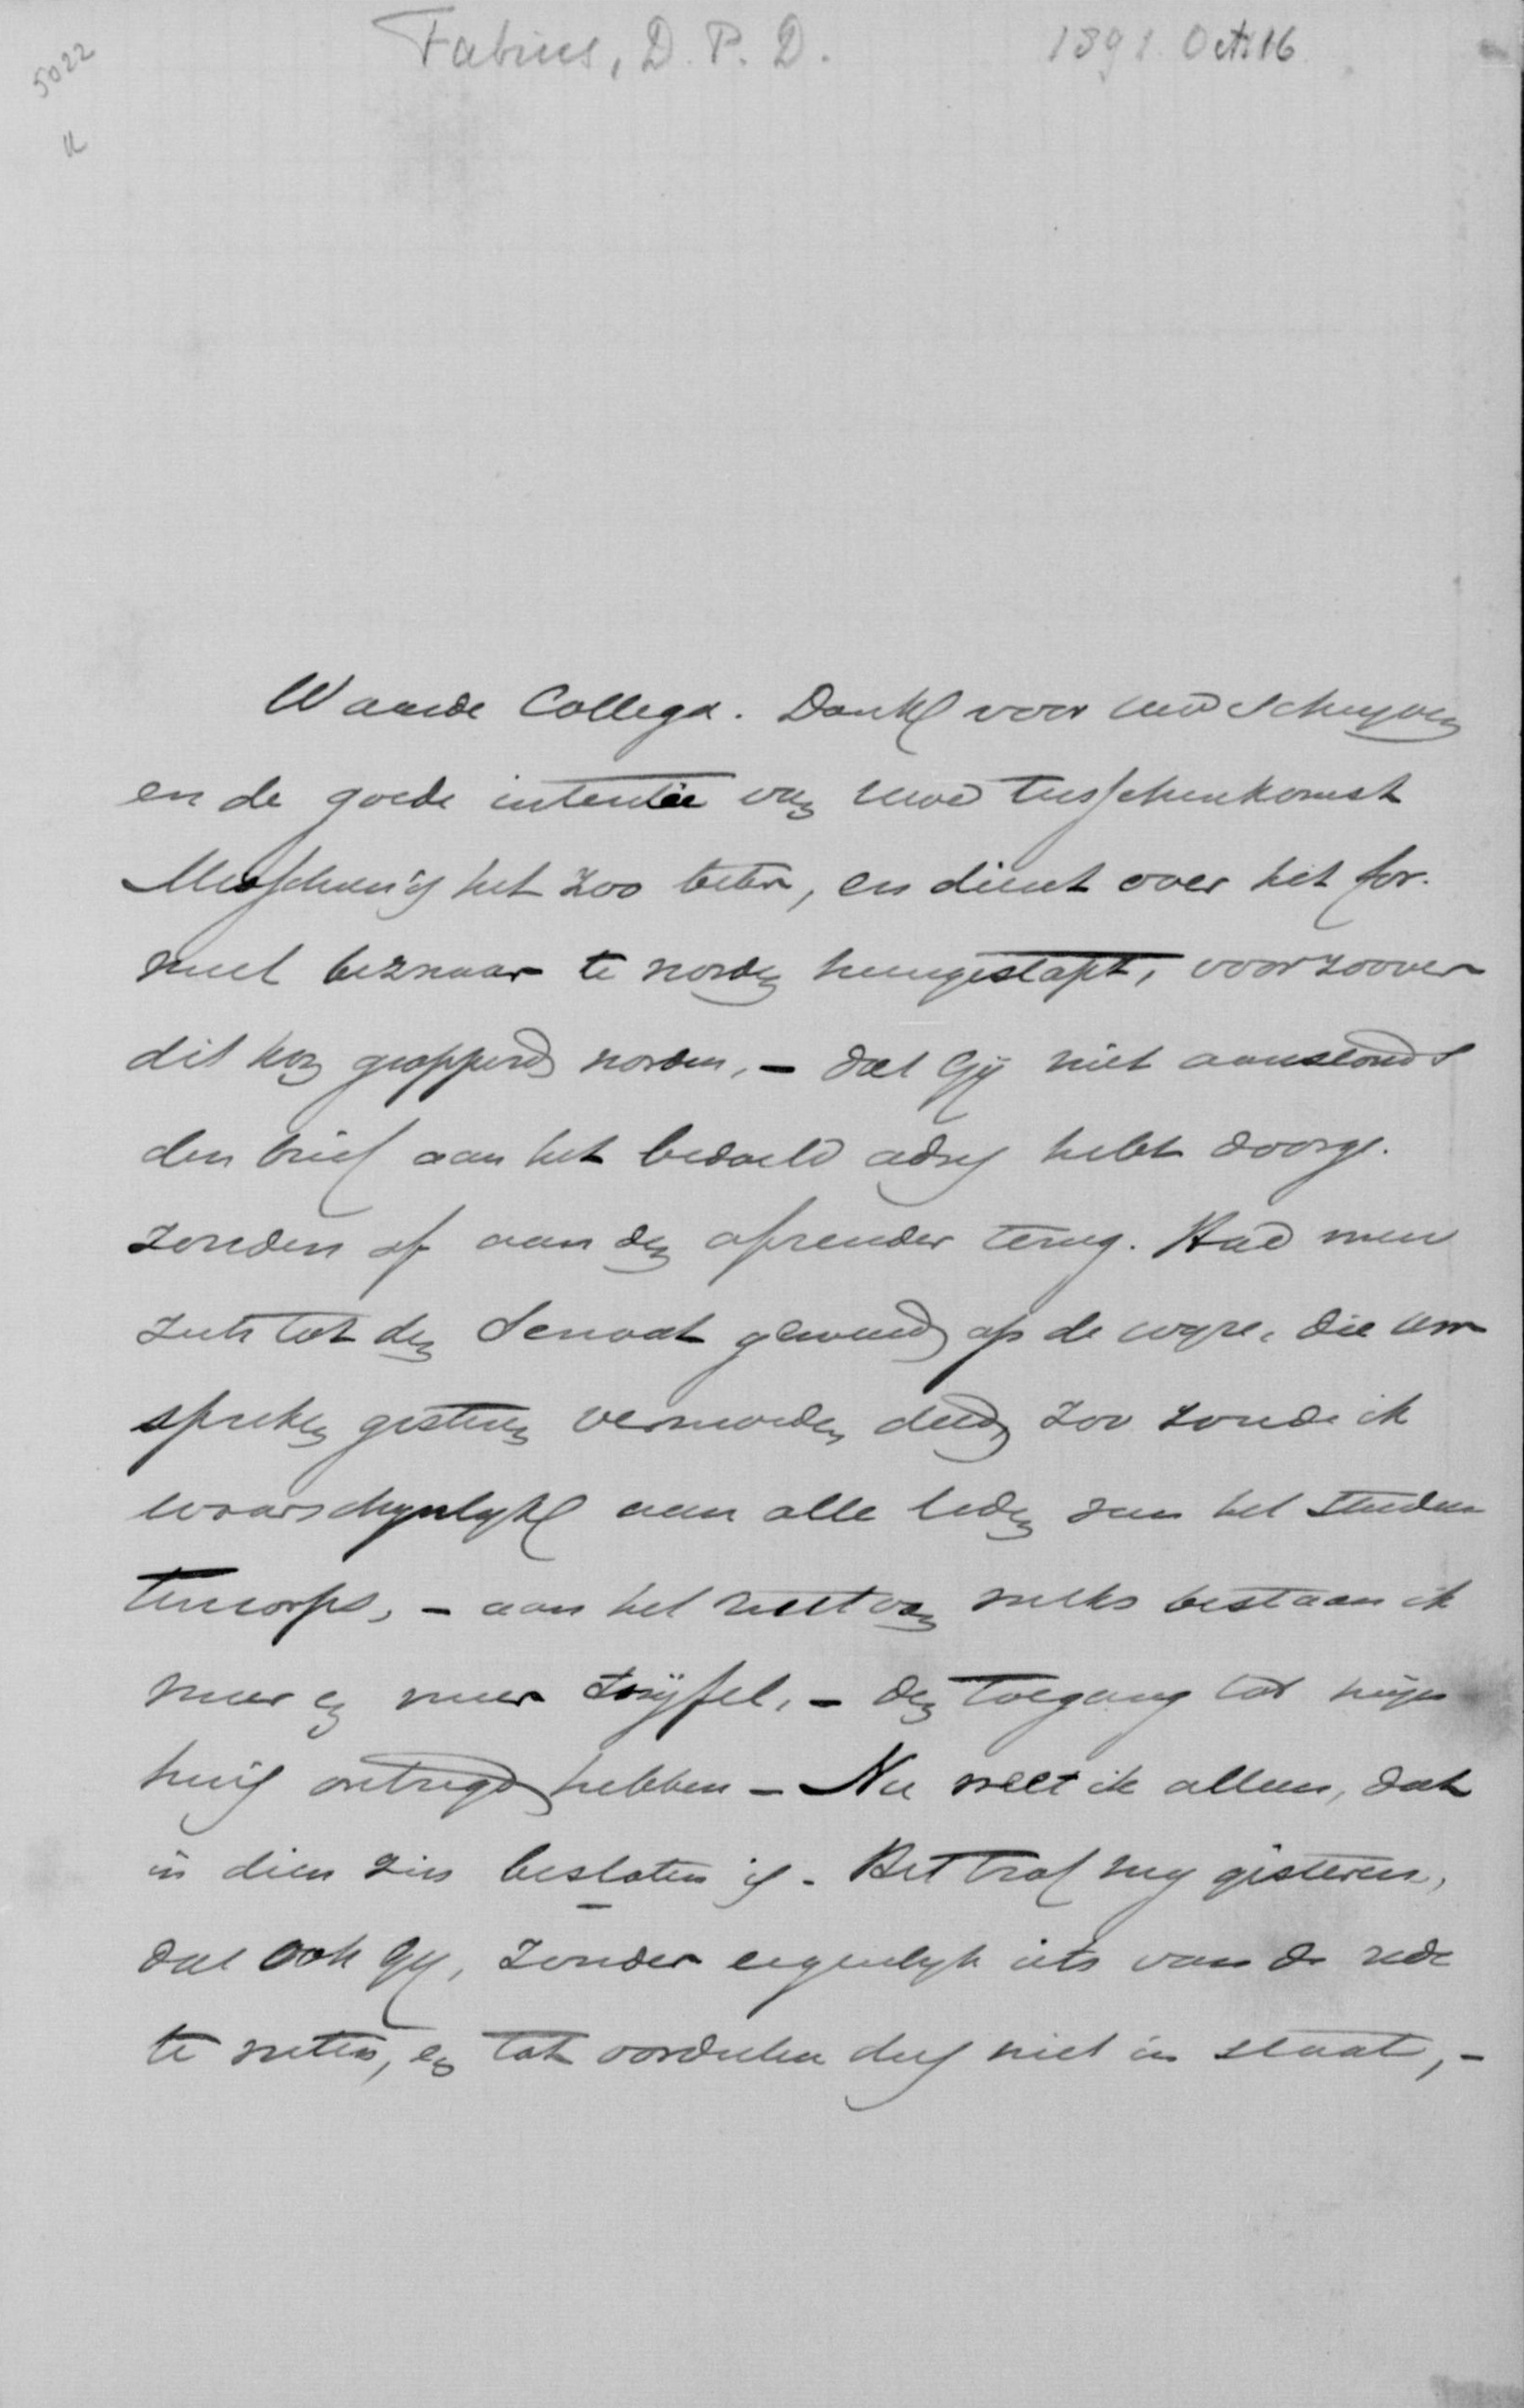 5022
Fabius, D. P. D.
1891. Oct. 16
Waarde Collega. Dank voor uw schryven
en de goede intentie van uwe tusschenkomst
Misschien is het zoo beter, en dient over het for-
meel bezwaar te worden heengestapt, voorzoover
dit kon geopperd worden, – dat Gij niet aanstonds
den brief aan het bedoeld adres hebt doorge-
zonden of aan den afzender terug. Had men
zich tot den Senaat gewend op de wyze, die uw
spreken gisteren vermoeden deed, zoo zoude ik
waarschynlyk aan alle leden van het Studen
tencorps, – aan het recht van welks bestaan ik
meer en meer twijfel, – den toegang tot mijn
huis ontzegd hebben – Nu weet ik alleen, dat
in dien zin besloten is. Het trof my gisteren,
dat ook Gy, zonder eigenlyk iets van de rede
te weten, en tot oordeelen dus niet in staat, –